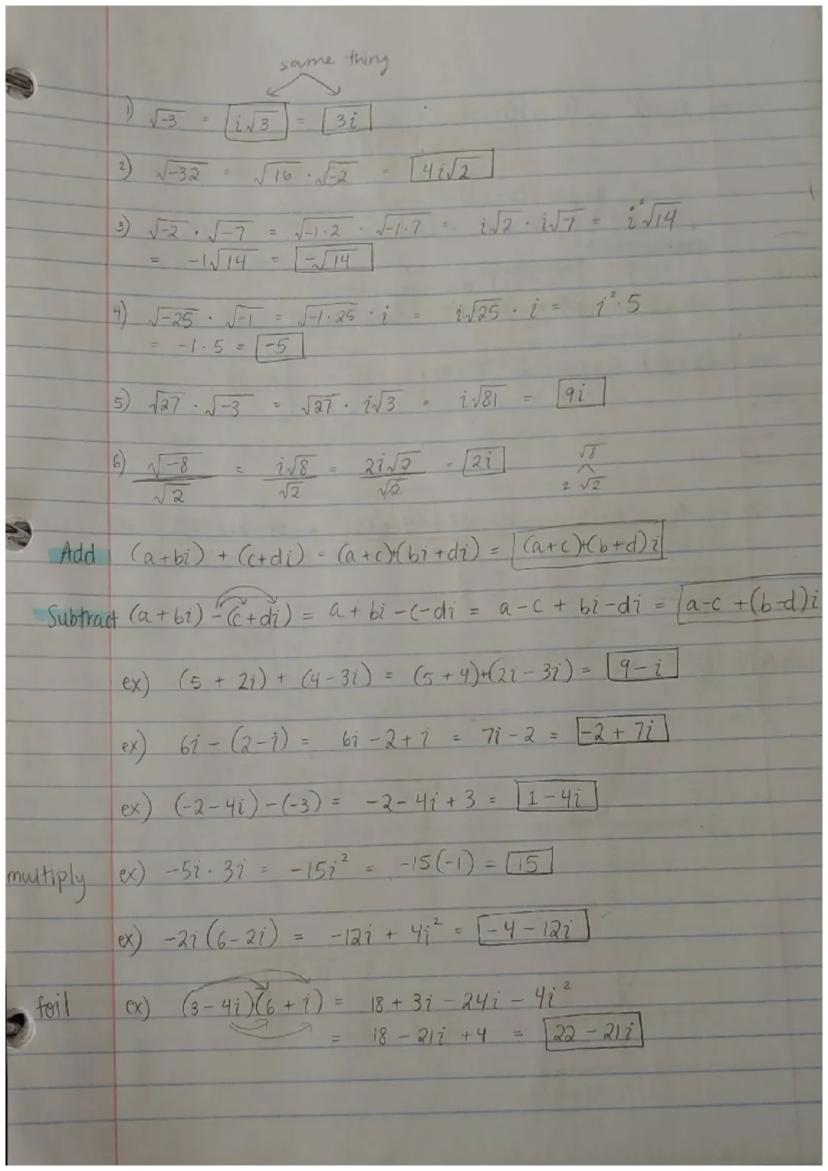 same thing
1) √-3 = i√3 = 3i
2) √-32 = √16 · √-2 = 4i√2
3) √-2 · √-7 = √-1·2 · √-1·7 = i√2 · i√7 = i²√14
= -1√14 = -√14
4) √-25 · √-1 = √-1·25 · i = i√25 · i = i²·5
= -1·5 = -5
5) √27 · √-3 = √27 · i√3 = i√81 = 9i
6) √-8/√2 = i√8/√2 = 2i√2/√2 = 2i √8
2 √2
Add (a+bi) + (c+di) = (a+c)+(bi+di) = (a+c)+(b+d)i
Subtract (a+bi) - (c+di) = a + bi - c - di = a-c + bi-di = a-c +(b-d)i
ex) (5 + 2i) + (4-3i) = (5+4)+(2i-3i) = 9-i
ex) 6i - (2-i) = 6i-2+i = 7i-2 = -2+7i
ex) (-2-4i)-(-3) = -2-4i+3 = 1-4i
multiply ex) -5i · 3i = -15i² = -15(-1) = 15
ex) -2i(6-2i) = -12i + 4i² = -4-12i
foil ex) (3-4i)(6+i) = 18 + 3i - 24i - 4i²
= 18 - 21i + 4 = 22-21i